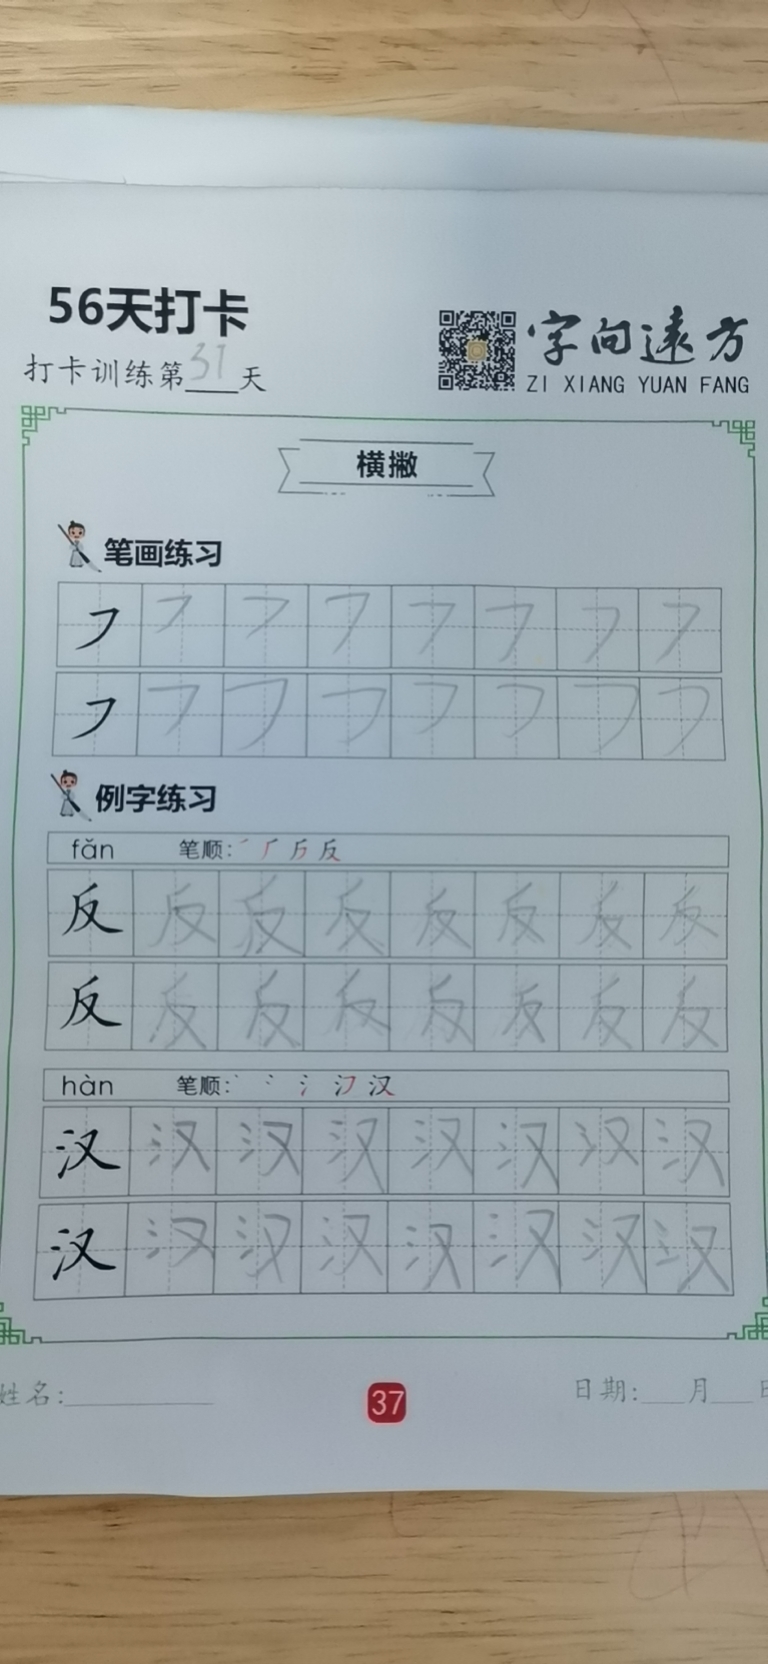 56天打卡
打卡训练第37天
字向远方
ZI XIANG YUAN FANG
横撇
笔画练习
㇇ ㇇ ㇇ ㇇ ㇇ ㇇ ㇇ ㇇
㇇ ㇇ ㇇ ㇇ ㇇ ㇇ ㇇ ㇇
例字练习
fǎn 笔顺: 反
反 反 反 反 反 反 反 反
反 反 反 反 反 反 反 反
hàn 笔顺: 汉
汉 汉 汉 汉 汉 汉 汉 汉
汉 汉 汉 汉 汉 汉 汉 汉
姓名: 37 日期: 月 日